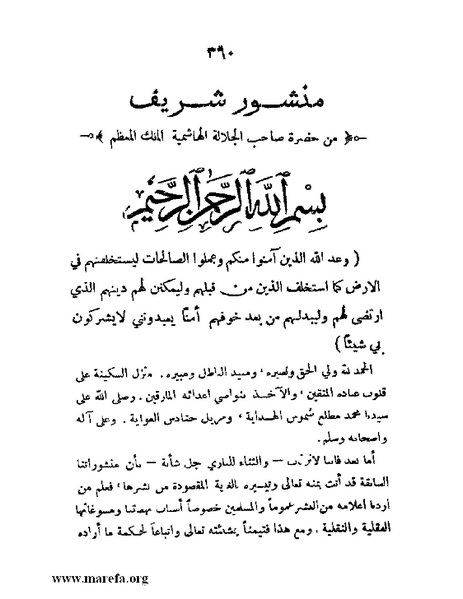 ٣٦٠
منشور شريف
من حضرة صاحب الجلالة الهاشمية الملك المعظم
بسم الله الرحمن الرحيم
( وعد الله الذين آمنوا منكم وعملوا الصالحات ليستخلفنهم في
الارض كما استخلف الذين من قبلهم وليمكنن لهم دينهم الذي
ارتضى لهم وليبدلنهم من بعد خوفهم أمناً يعبدونني لايشركون
بي شيئاً )
الحمد لله ولي الحق ونصيره، ومبيد الباطل ومبيره. منزل السكينة على
قلوب عباده المتقين، والآخذ بنواصي اعدائه المارقين. وصلى الله على
سيدنا محمد مطلع شموس الهداية، ومزيل حنادس الغواية. وعلى آله
واصحابه وسلم.
أما بعد فاننا لانرتاب — والثناء للباري جل شأنه — بأن منشوراتنا
السابقة قد أتت بمنه تعالى وتيسيره بالغاية المقصودة من نشرها، فعلم من
أردنا اعلامه من البشر عموماً والمسلمين خصوصاً أسباب نهضتنا ومسوغاتها
العقلية والنقلية. ومع هذا فتيمناً بمشيئته تعالى واتباعاً لحكمة ما أراده
www.marefa.org